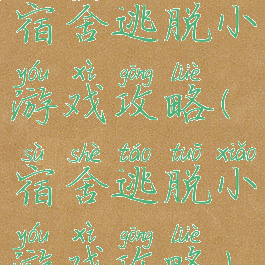 宿舍逃脱小
yóu xì gōng lüè
游戏攻略(
sù shè táo tuō xiǎo
宿舍逃脱小
yóu xì gōng lüè
游戏攻略)